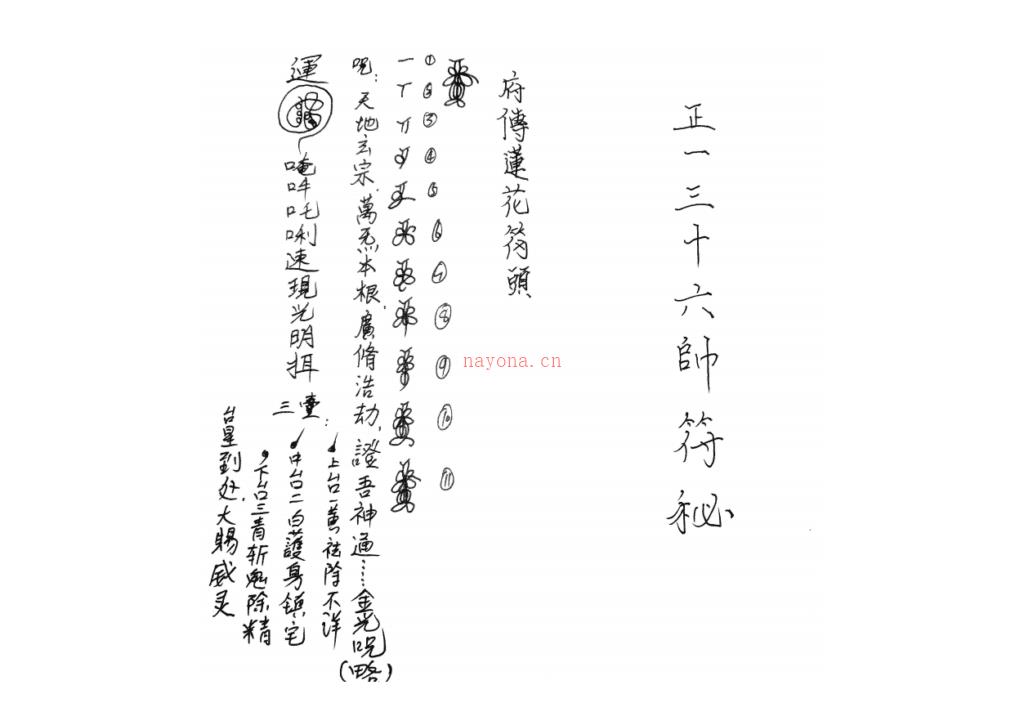 正一三十六帥符秘
府傳蓮花符頭
① ② ③ ④ ⑤ ⑥ ⑦ ⑧ ⑨ ⑩ ⑪
咒：天地玄宗，萬炁本根，廣脩浩劫，證吾神通……金光咒（略）
運
唵吽吒唎速現光明揖
三臺：
上台一黃祛除不洋
中台二白護身鎮宅
下台三青斬鬼除精
台星到处，大賜威灵
nayona.cn